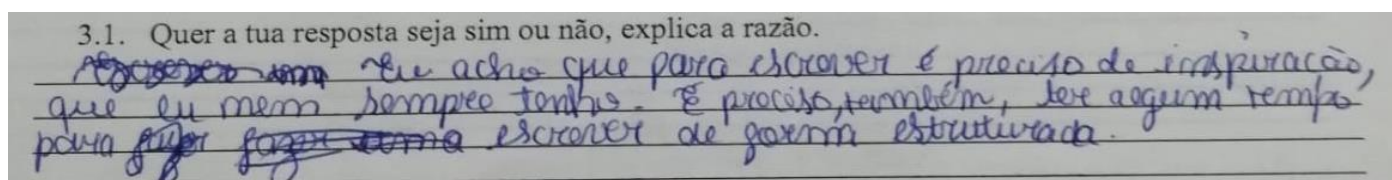 3.1. Quer a tua resposta seja sim ou não, explica a razão.
Eu acho que para escrever é preciso de inspiração,
que eu nem sempre tenho. É preciso, também, ter algum tempo
para escrever de forma estruturada.